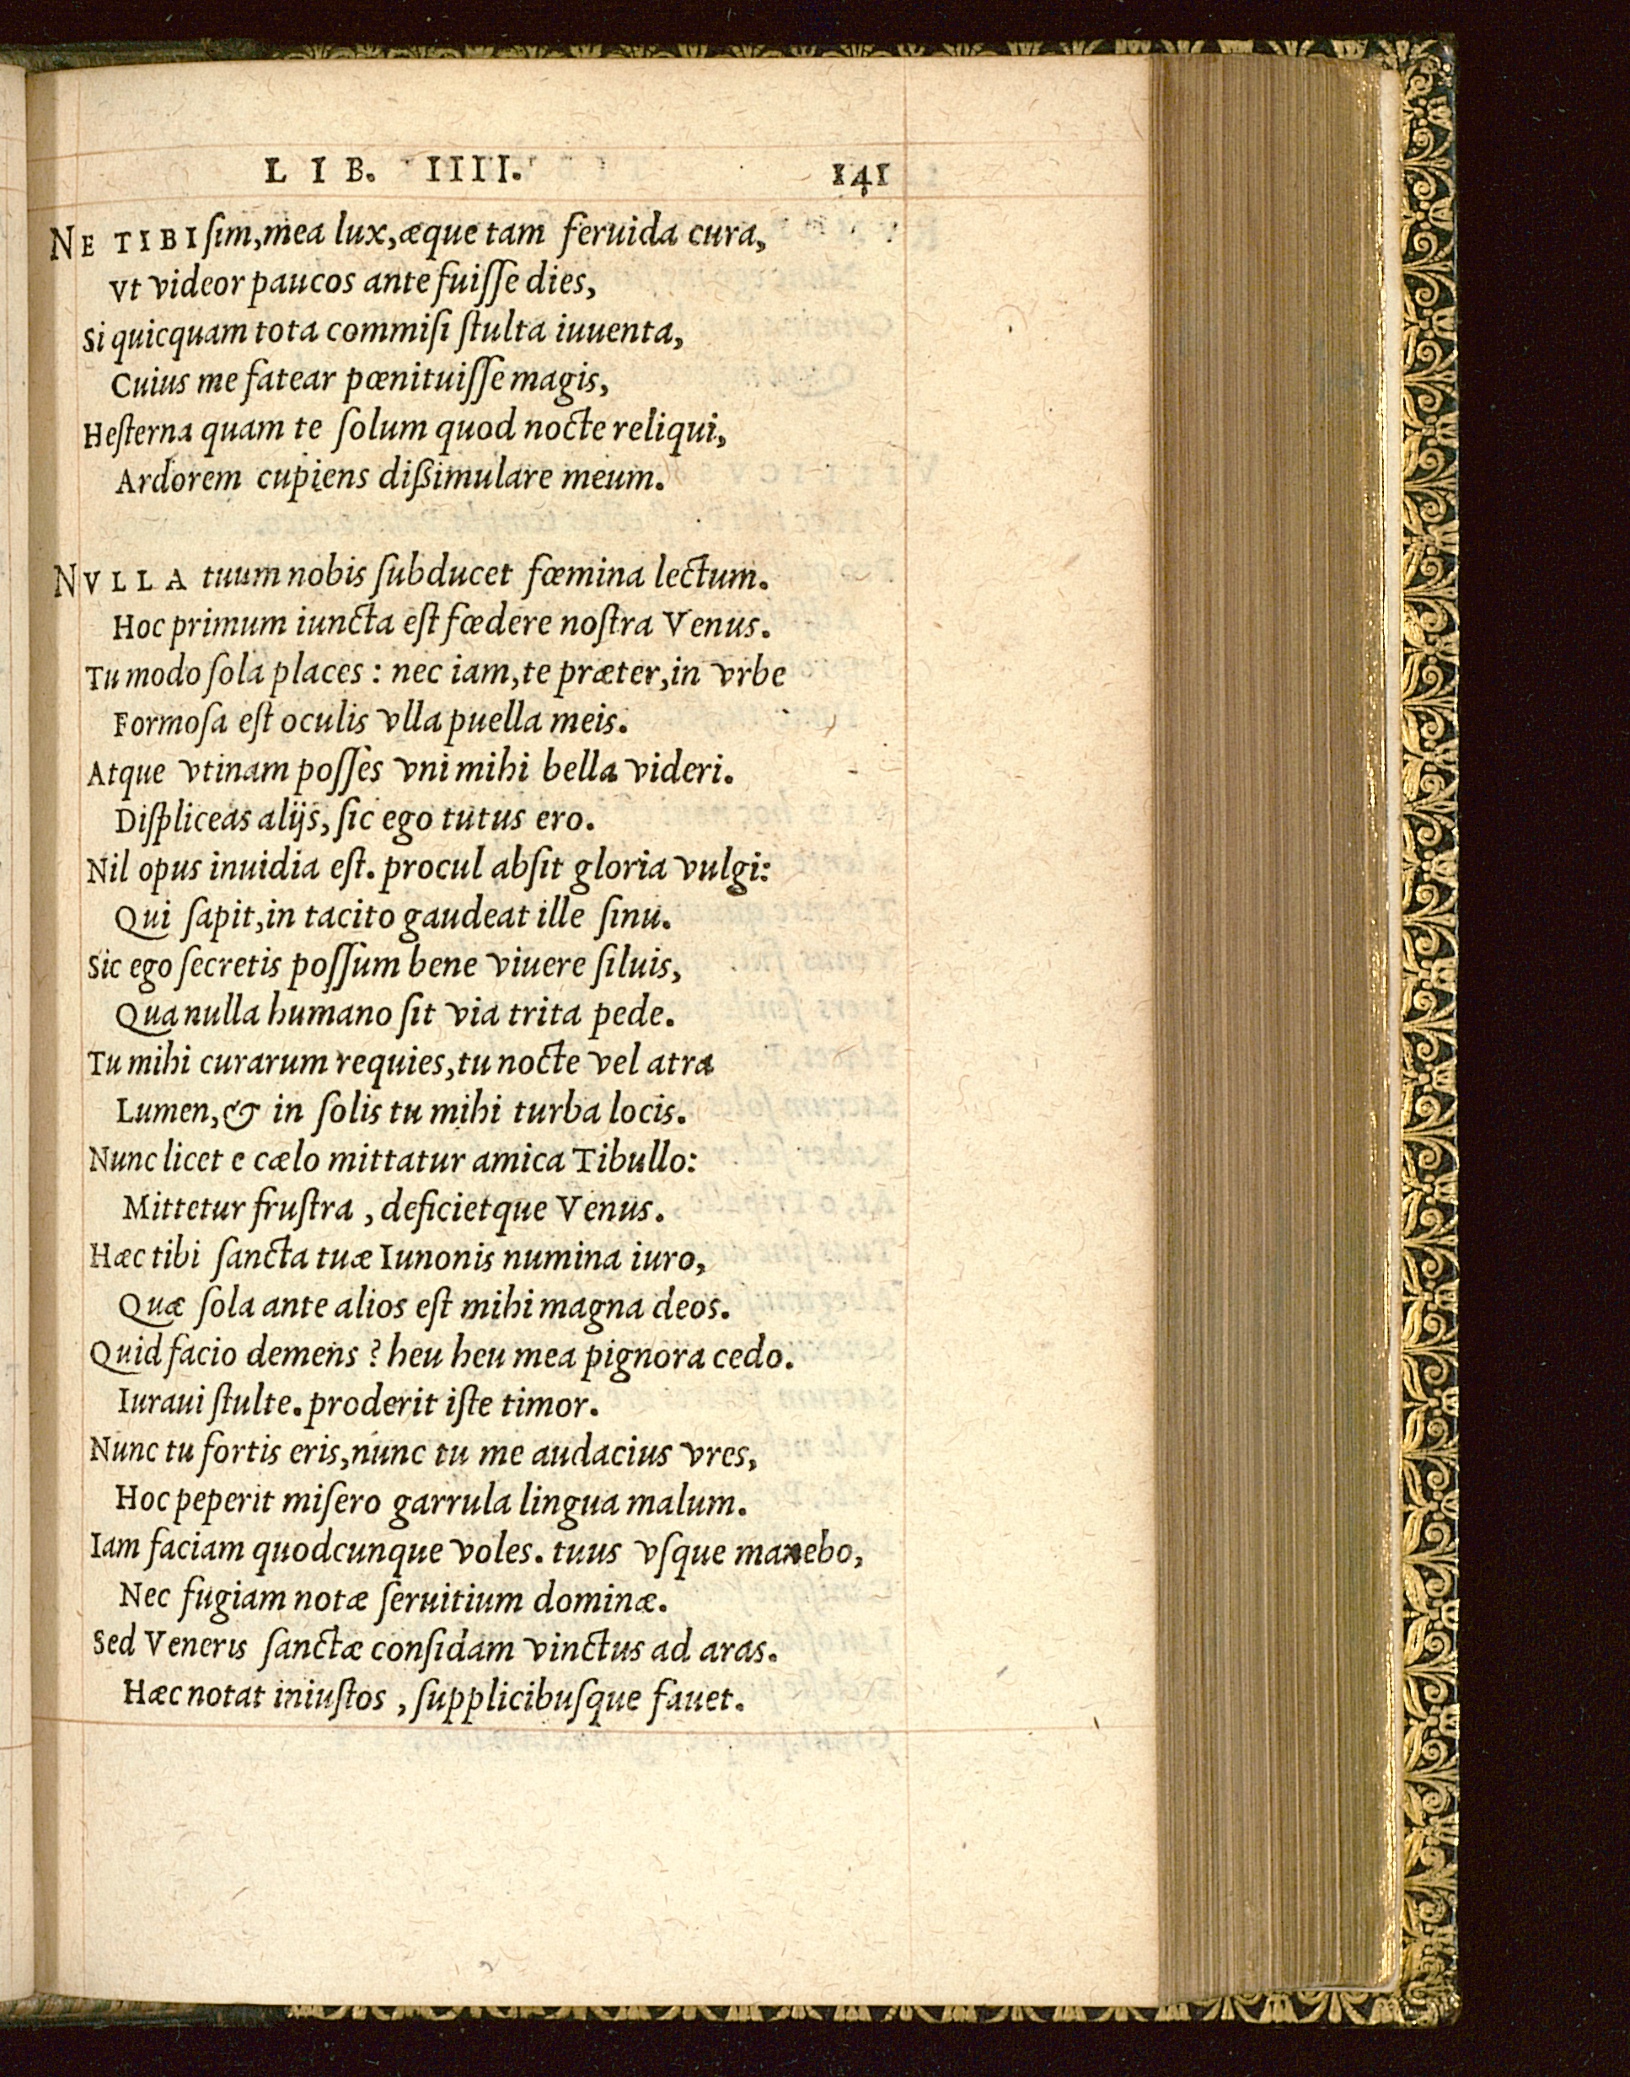 LIB. IIII. 141
NE TIBI ſim, mea lux, æque tam feruida cura,
Vt videor paucos ante fuiſſe dies,
Si quicquam tota commiſi ſtulta iuuenta,
Cuius me fatear pœnituiſſe magis,
Heſterna quam te ſolum quod nocte reliqui,
Ardorem cupiens dißimulare meum.
NVLLA tuum nobis ſubducet fœmina lectum.
Hoc primum iuncta eſt fœdere noſtra Venus.
Tu modo ſola places : nec iam, te præter, in vrbe
Formoſa eſt oculis vlla puella meis.
Atque vtinam poſſes vni mihi bella videri.
Diſpliceas alijs, ſic ego tutus ero.
Nil opus inuidia eſt. procul abſit gloria vulgi:
Qui ſapit, in tacito gaudeat ille ſinu.
Sic ego ſecretis poſſum bene viuere ſiluis,
Qua nulla humano ſit via trita pede.
Tu mihi curarum requies, tu nocte vel atra
Lumen, & in ſolis tu mihi turba locis.
Nunc licet e cælo mittatur amica Tibullo:
Mittetur fruſtra , deficietque Venus.
Hæc tibi ſancta tuæ Iunonis numina iuro,
Quæ ſola ante alios eſt mihi magna deos.
Quid facio demens ? heu heu mea pignora cedo.
Iuraui ſtulte. proderit iſte timor.
Nunc tu fortis eris, nunc tu me audacius vres,
Hoc peperit miſero garrula lingua malum.
Iam faciam quodcunque voles. tuus vſque manebo,
Nec fugiam notæ ſeruitium dominæ.
Sed Veneris ſanctæ conſidam vinctus ad aras.
Hæc notat iniuſtos , ſupplicibuſque fauet.